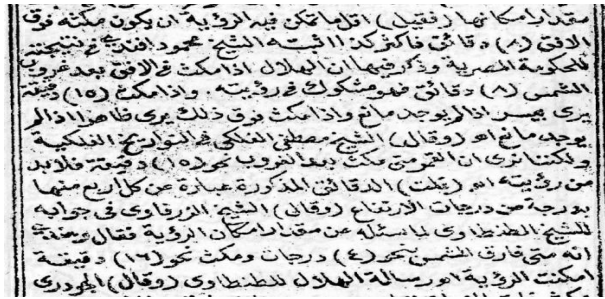 مقدار امكانها (فقيل) اقل ما تمكن فيه الرؤية ان يكون مكثه فوق
الافق (٨) دقائق فاكثر كذا اثبته الشيخ محمود افندى فى نتيجته
للحكومة المصرية وذكر فيها ان الهلال اذا مكث فى الافق بعد غروب
الشمس (٨) دقائق فهو مشكوك فى رؤيته . واذا مكث (١٥) دقيقة
يرى بعسر اذا لم يوجد مانع واذا مكث فوق ذلك يرى ظاهرا اذا لم
يوجد مانع اه (وقال) الشيخ مصطفى الفلكى فى التواريخ الفلكية
ولكننا نرى ان القمر متى مكث بعد الغروب نحو (١٥) دقيقة فلا بد
من رؤيته اه (قلت) الدقائق المذكورة عبارة عن كل اربع منها
بدرجة من درجات الارتفاع (وقال) الشيخ الزرقاوى فى جوابه
للشيخ الطنطاوى لما سئله عن مقدار امكان الرؤية فقال
انه متى فارق الشمس بنحو (٤) درجات ومكث نحو (١٦) دقيقة
امكنت الرؤية اه رسالة الهلال للطنطاوى (وقال)